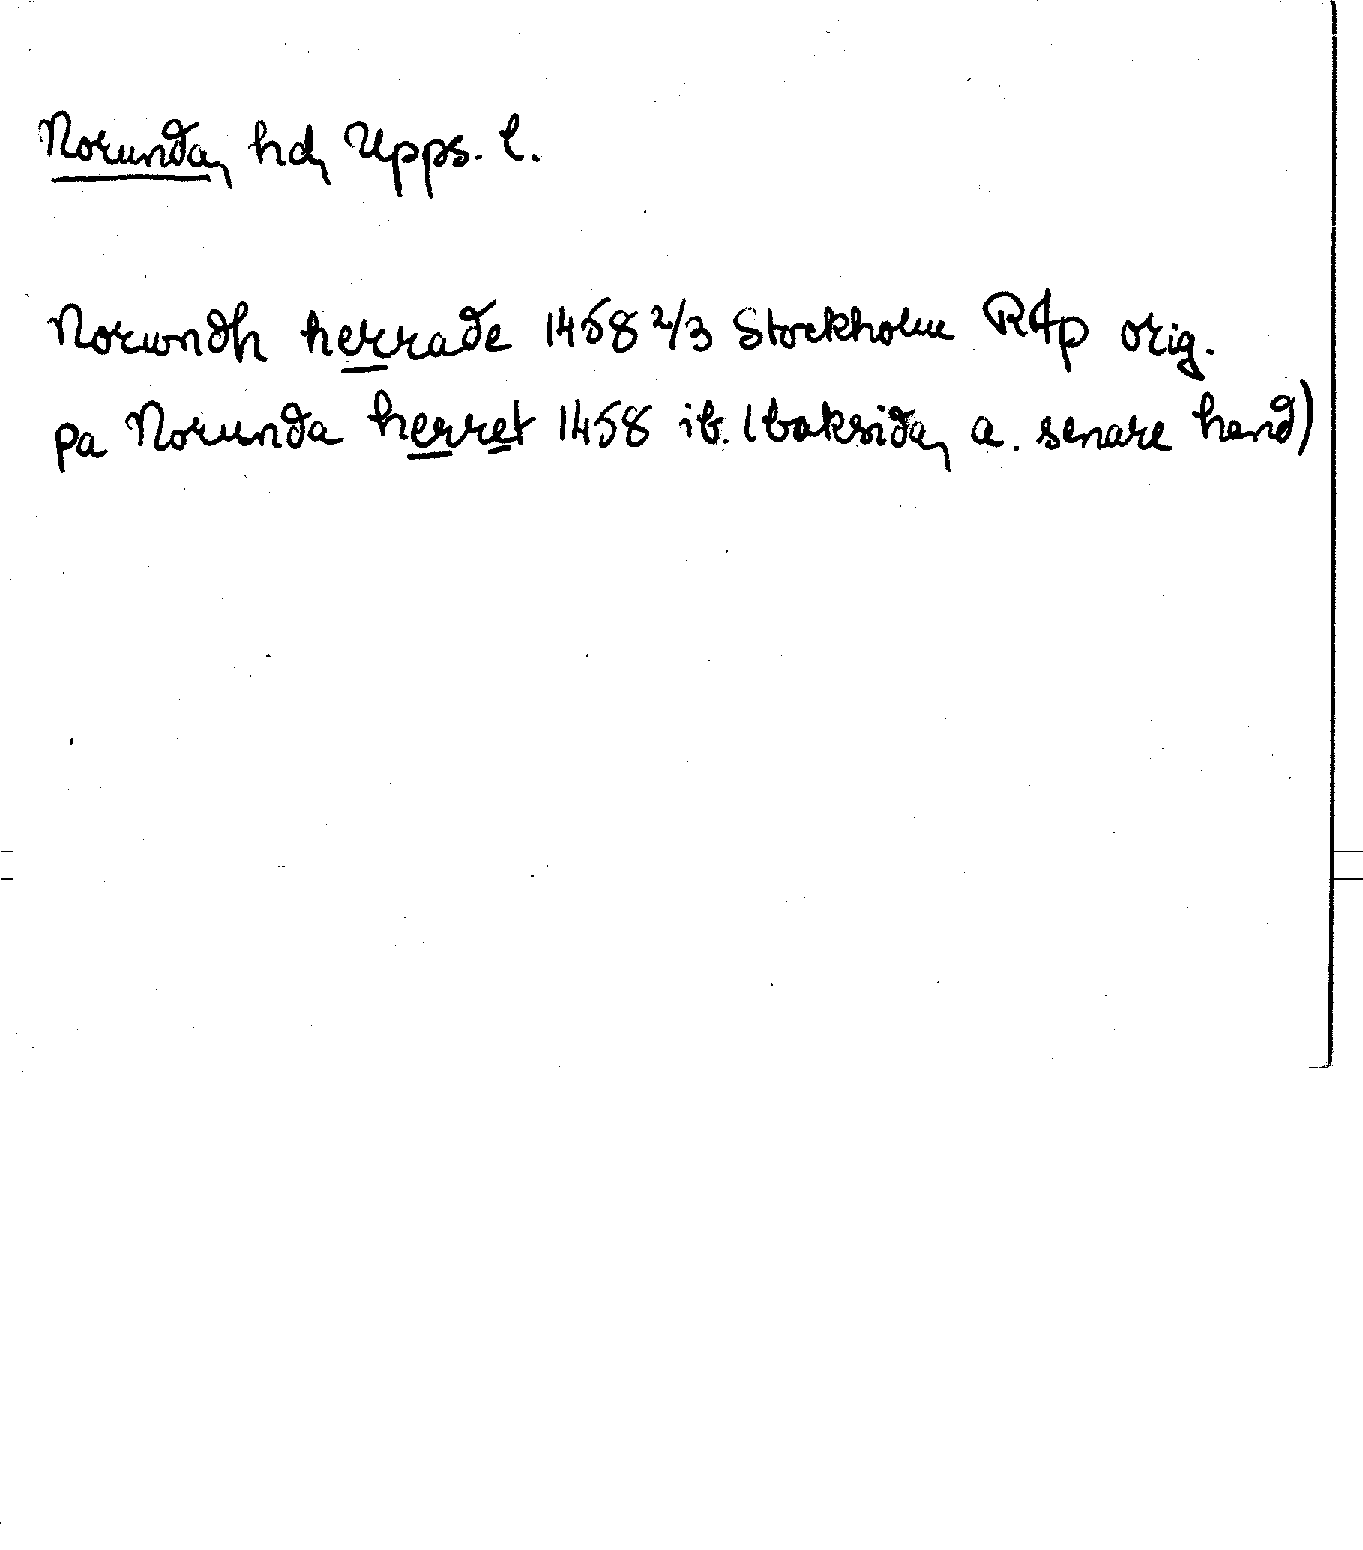 Norunda, hd, Upps. l.
Norwndh herrade 1458 2/3 Stockholm RAp orig.
pa Norunda herret 1458 ib. (baksida, a. senare hand)